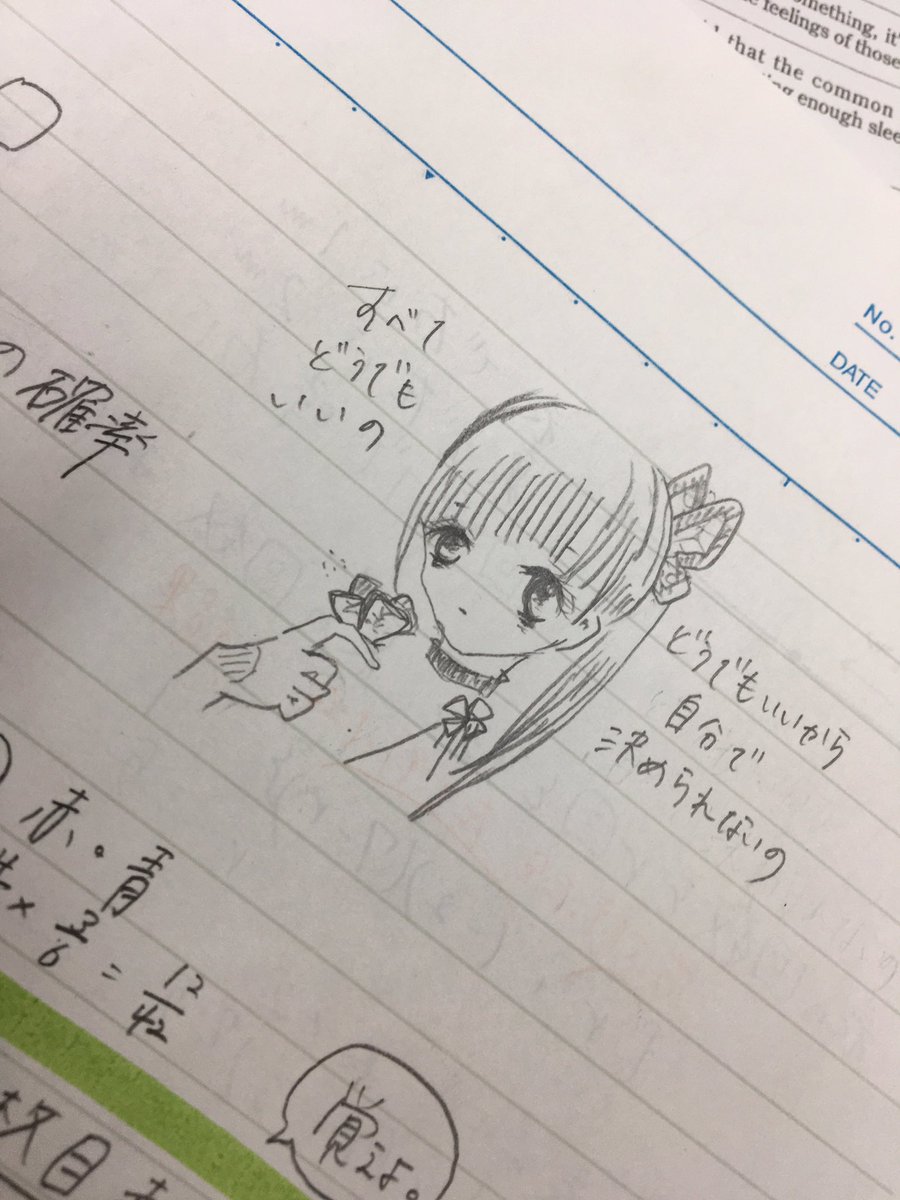 omething, it'
feelings of those
that the common
enough slee
No.
DATE
すべて
どうでも
いいの
の確率
どうでもいいから
自分で
決められないの
赤。青
× 3/6 = 12/42
覚えよ。